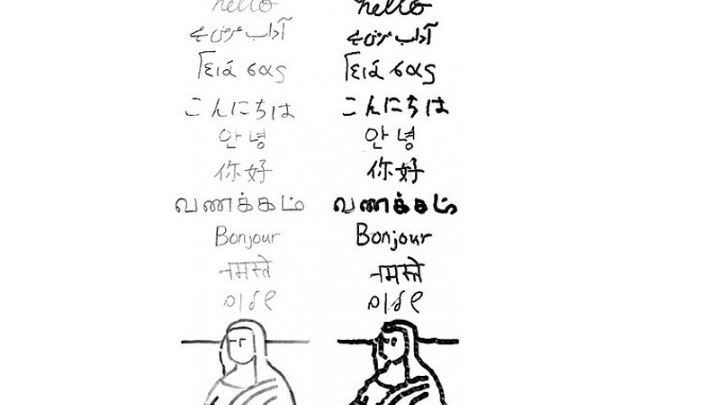 hello hello
آداب عرض ہے آداب عرض ہے
Γειά σας Γειά σας
こんにちは こんにちは
안녕 안녕
你好 你好
வணக்கம் வணக்கம்
Bonjour Bonjour
नमस्ते नमस्ते
שלום שלום